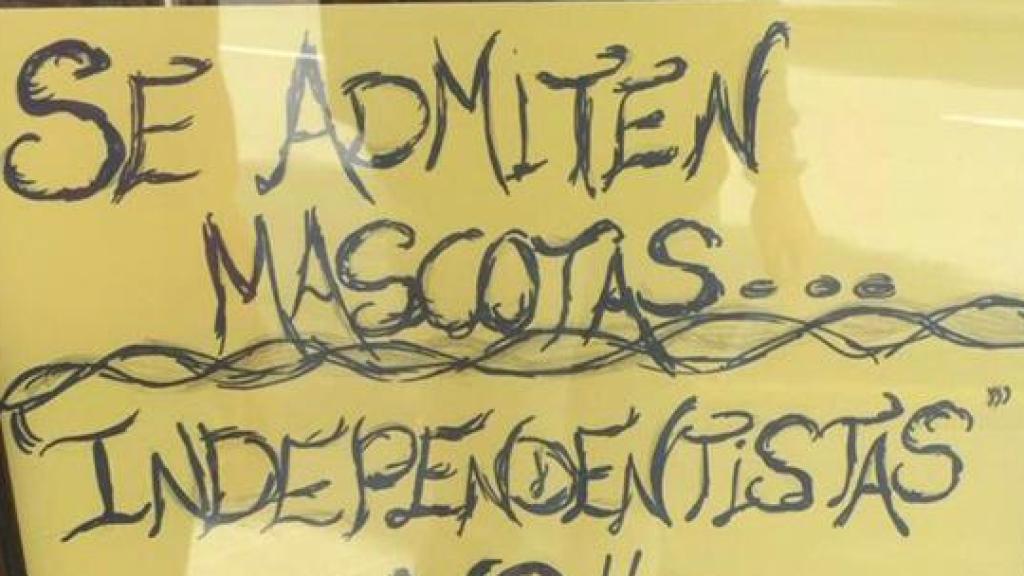 SE ADMiTEN
MASCOTAS....
"INDEPENDENTiSTAS"